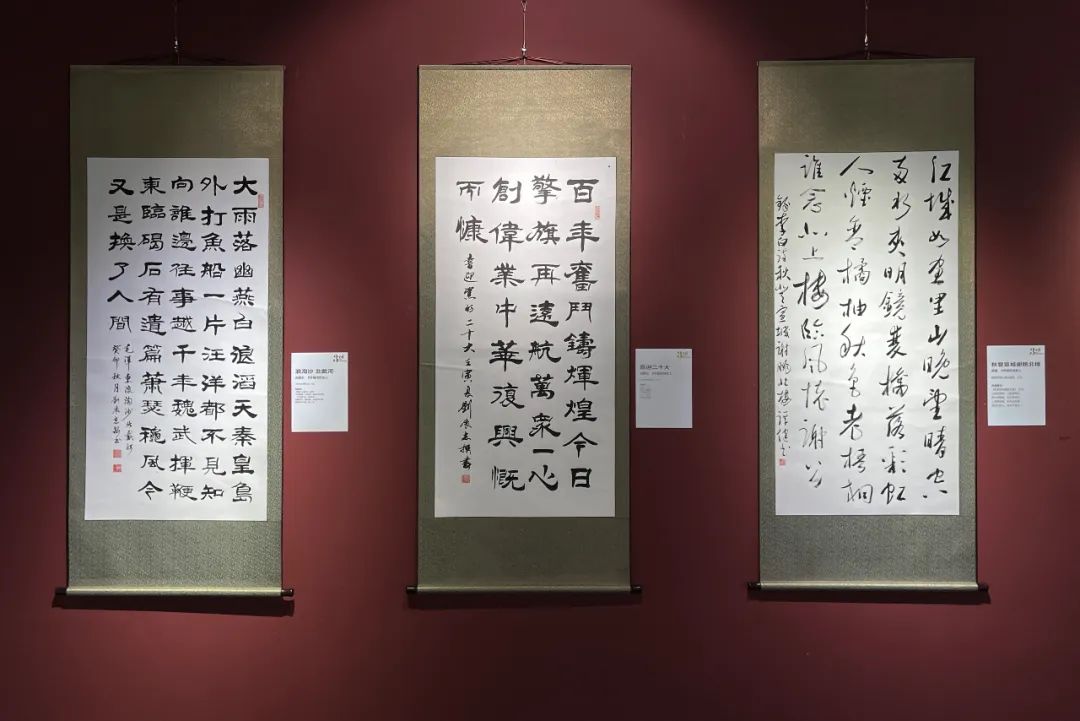 大雨落幽燕白浪滔天秦皇島
外打魚船一片汪洋都不見知
向誰邊往事越千年魏武揮鞭
東臨碣石有遺篇蕭瑟穐風今
又是換了人間
毛澤東浪淘沙北戴河
癸卯秋月劉
浪淘沙 北戴河
百年奮鬥鑄輝煌今日
擎旗再遠航萬衆一心
創偉業中華復興慨
而慷
喜迎黨的二十大壬寅夏劉志撰書
喜迎二十大
江城如畫里山晚望晴空
兩水夾明鏡雙橋落彩虹
人煙寒橘柚秋色老梧桐
誰念北上樓臨風懷謝公
錄李白詩秋登宣城謝朓北樓
秋登宣城谢朓北楼